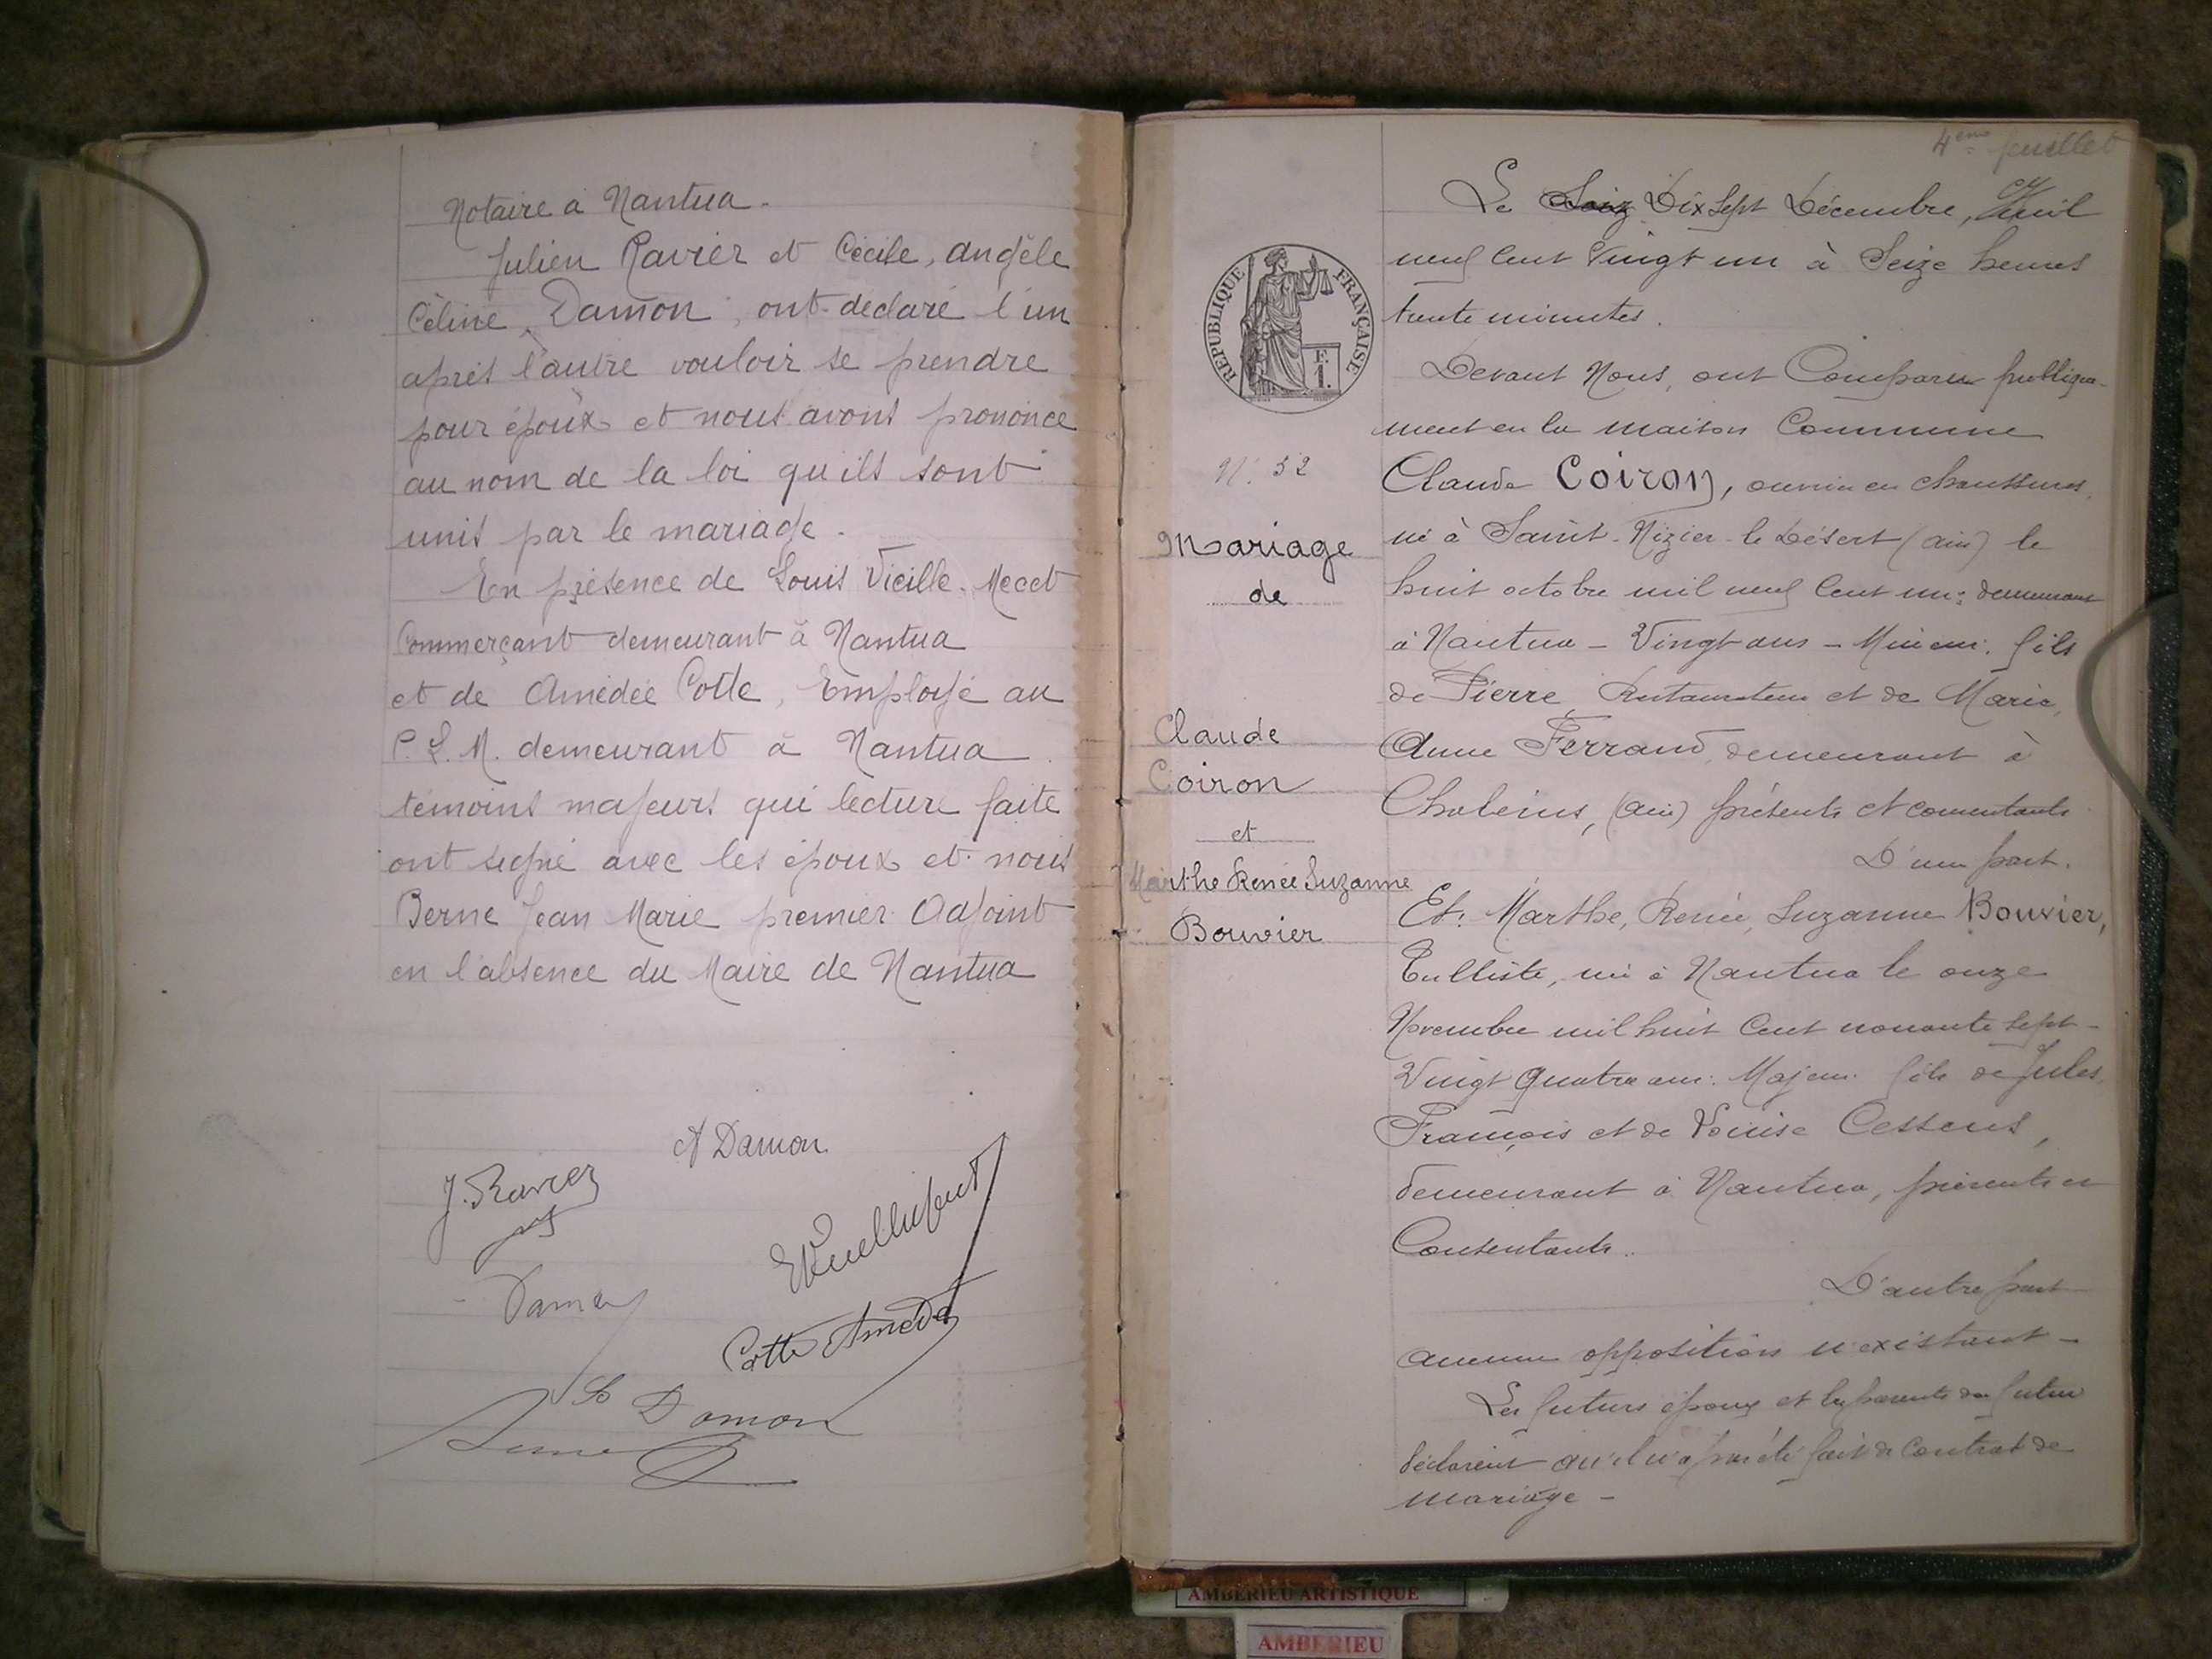 Notaire à Nantua.
Julien Ravier et Cécile, angèle
Céline Damon, ont déclaré l'un
après l'autre vouloir se prendre
pour époux et nous avons prononcé
au nom de la loi qu'ils sont
unis par le mariage.
En présence de Louis Vieille-Mecet
Commerçant demeurant à Nantua
et de Amédée Cotte, Employé au
P.L.M. demeurant à Nantua
témoins majeurs qui lecture faite
ont signé avec les époux et nous
Berne Jean Marie premier Adjoint
en l'absence du Maire de Nantua
A Damon
J. Ravier
Damon
Cotte Amédé
Damon
4eme feuillet
Le Seiz Dix Sept Décembre, Mil
neuf Cent Vingt un à Seize heures
trente minutes.
REPUBLIQUE FRANÇAISE
E.
I.
Devant Nous, ont Comparu publique-
ment en la maison Commune
N. 52
Mariage
de
Claude
Coiron
et
Marthe Renée Suzanne
Bouvier
Claude Coiron, ouvrier en chaussures,
né à Saint-Nizier-le Désert (ain) le
huit octobre mil neuf Cent un; demeurant
à Nantua - Vingt ans - Mineur. fils
de Pierre, Restaurateur et de Marie,
Anne Ferrand, demeurant à
Chaleins, (ain) présents et consentants
D'une part.
Et: Marthe, Renée, Suzanne Bouvier,
Tulliste, née à Nantua le onze
Novembre mil huit Cent nonante sept -
Vingt quatre ans: Majeure. fille de Jules,
François et de Louise Cessens,
demeurant à Nantua, présents et
Consentants.
D'autre part
aucune opposition n'existant -
Les futurs époux et les parents du futur
déclarent qu'il n'a pas été fait de Contrat de
mariage -
AMBERIEU ARTISTIQUE
AMBERIEU